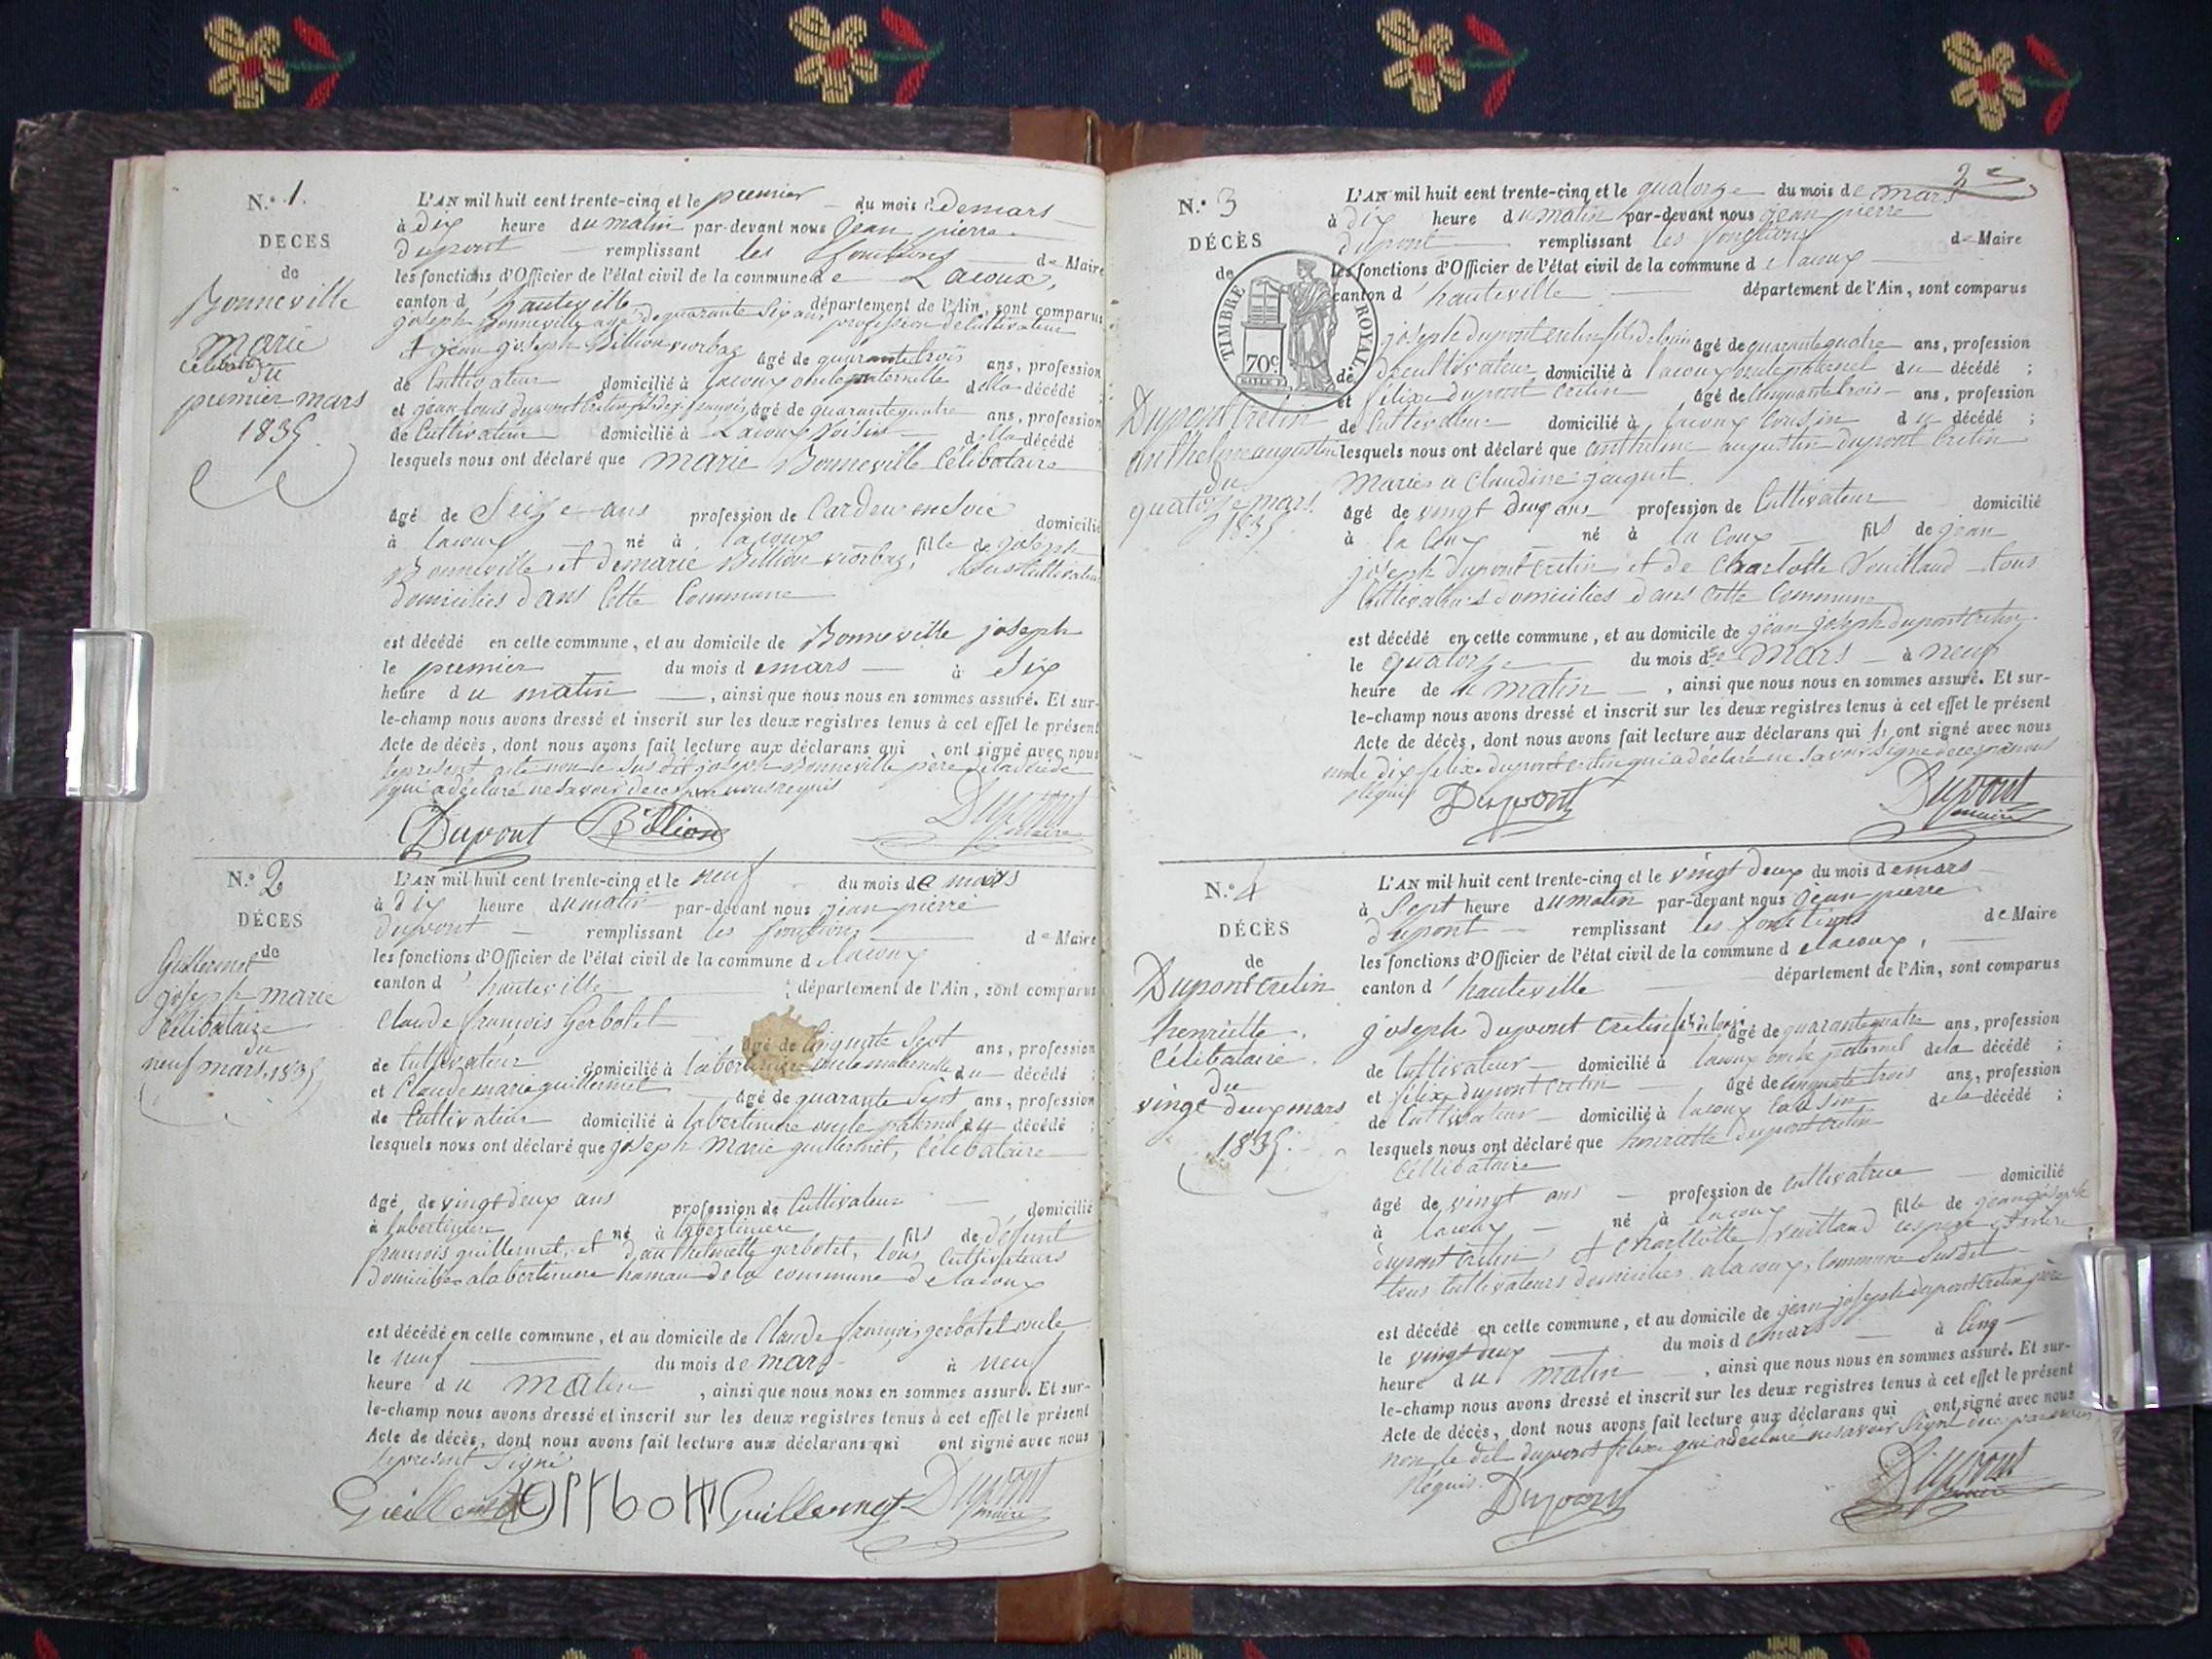 N.º 1.
DÉCÈS
de
Bonneville
marie
Célibataire
du
premier mars
1835.
L'AN mil huit cent trente-cinq et le premier du mois de mars
à dix heure du matin par-devant nous jean pierre
dupont remplissant les fonctions de Maire
les fonctions d'Officier de l'état civil de la commune de Lacoux,
canton d'hauteville département de l'Ain, sont comparus
joseph Bonneville agé de quarante six ans profession de Cultivateur
et jean joseph Billion viorbaz âgé de quarante trois ans, profession
de Cultivateur domicilié à lacoux oncle maternelle de la décédé ;
et jean louis dupont cretin fils de âgé de quarante quatre ans, profession
de Cultivateur domicilié à Lacoux Voisin de la décédé ;
lesquels nous ont déclaré que marie Bonneville Célibataire
âgé de Seize ans profession de Cardeur en Soie domicilié
à lacoux né à lacoux fille de joseph
Bonneville et de marie Billion viorbaz, tous Cultivateurs
domiciliés dans Cette Commune
est décédé en cette commune, et au domicile de Bonneville joseph
le premier du mois de mars à Six
heure du matin, ainsi que nous nous en sommes assuré. Et sur-
le-champ nous avons dressé et inscrit sur les deux registres tenus à cet effet le présent
Acte de décès, dont nous avons fait lecture aux déclarans qui ont signé avec nous
le present acte non le Sus dit joseph Bonneville pere de la décédé
qui a déclaré ne savoir de ce par nous requis
Dupont Billion Dupont
maire
N.º 2
DÉCÈS
de
Guillermet
joseph marie
Célibataire
du
neuf mars 1835
L'AN mil huit cent trente-cinq et le neuf du mois de mars
à dix heure du matin par-devant nous jean pierre
dupont remplissant les fonctions de Maire
les fonctions d'Officier de l'état civil de la commune de lacoux
canton d'hauteville département de l'Ain, sont comparus
Claude françois Gerbotel
âgé de Cinquante Sept ans, profession
de Cultivateur domicilié à labertiniere oncle maternelle du décédé ;
et Claude marie guillermet âgé de quarante Sept ans, profession
de Cultivateur domicilié à labertiniere oncle paternel du décédé ;
lesquels nous ont déclaré que joseph Marie guillermet, Célibataire
âgé de vingt deux ans profession de Cultivateur domicilié
à labertiniere né à labertiniere fils de défunt
françois guillermet, et d'anthelmette gerbotel, tous Cultivateurs
domiciliés a labertiniere hamau de la commune de lacoux
est décédé en cette commune, et au domicile de Claude françois gerbotel oncle
le neuf du mois de mars à neuf
heure du matin, ainsi que nous nous en sommes assuré. Et sur-
le-champ nous avons dressé et inscrit sur les deux registres tenus à cet effet le présent
Acte de décès, dont nous avons fait lecture aux déclarans qui ont signé avec nous
le présent Signé
Guillermet Guillermet Dupont
maire
2
N.º 3
DÉCÈS
de
TIMBRE ROYAL
70c
Dupont Cretin
anthelme augustin
du
quatorze mars.
1835
L'AN mil huit cent trente-cinq et le quatorze du mois de mars
à dix heure du matin par-devant nous jean pierre
dupont remplissant les fonctions de Maire
les fonctions d'Officier de l'état civil de la commune de lacoux
canton d'hauteville département de l'Ain, sont comparus
joseph dupont cretin fils de louis âgé de quarante quatre ans, profession
de Cultivateur domicilié à lacoux oncle paternel du décédé ;
et félix dupont Cretin âgé de Cinquante trois ans, profession
de Cultivateur domicilié à lacoux Cousin du décédé ;
lesquels nous ont déclaré que anthelme augustin dupont Cretin
Mariés à Claudine jacquet.
âgé de vingt deux ans profession de Cultivateur domicilié
à la Coux né à la Coux fils de jean
joseph dupont cretin et de Charlotte Vuillaud tous
Cultivateurs domiciliés dans Cette Commune
est décédé en cette commune, et au domicile de jean joseph dupont Cretin
le quatorze du mois de Mars à neuf
heure du matin, ainsi que nous nous en sommes assuré. Et sur-
le-champ nous avons dressé et inscrit sur les deux registres tenus à cet effet le présent
Acte de décès, dont nous avons fait lecture aux déclarans qui ont signé avec nous
félix dupont cretin qui a déclaré ne Savoir Signé de ce par nous
requis
Dupont Dupont
maire
N.º 4
DÉCÈS
de
Dupont Cretin
henriette.
Célibataire.
du
vingt deux mars
1835.
L'AN mil huit cent trente-cinq et le vingt deux du mois de mars
à Sept heure du matin par-devant nous jean pierre
dupont remplissant les fonctions de Maire
les fonctions d'Officier de l'état civil de la commune de lacoux,
canton d'hauteville département de l'Ain, sont comparus
joseph dupont cretin fils de louis âgé de quarante quatre ans, profession
de Cultivateur domicilié à lacoux oncle paternel de la décédé ;
et félix dupont Cretin âgé de Cinquante trois ans, profession
de Cultivateur domicilié à lacoux Cousin de la décédé ;
lesquels nous ont déclaré que henriette dupont cretin
Célibataire
âgé de vingt ans profession de Cultivatrice domicilié
à lacoux né à lacoux fille de jean joseph
dupont Cretin et Charlotte Vuillaud ses pere et mere
tous Cultivateurs domiciliés a lacoux, Commune Susdit
est décédé en cette commune, et au domicile de jean joseph dupont Cretin père
le vingt deux du mois de mars à Cinq
heure du matin, ainsi que nous nous en sommes assuré. Et sur-
le-champ nous avons dressé et inscrit sur les deux registres tenus à cet effet le présent
Acte de décès, dont nous avons fait lecture aux déclarans qui ont signé avec nous
non le dit dupont félix qui a déclaré ne savoir Signé de ce par nous
requis.
Dupont Dupont
maire